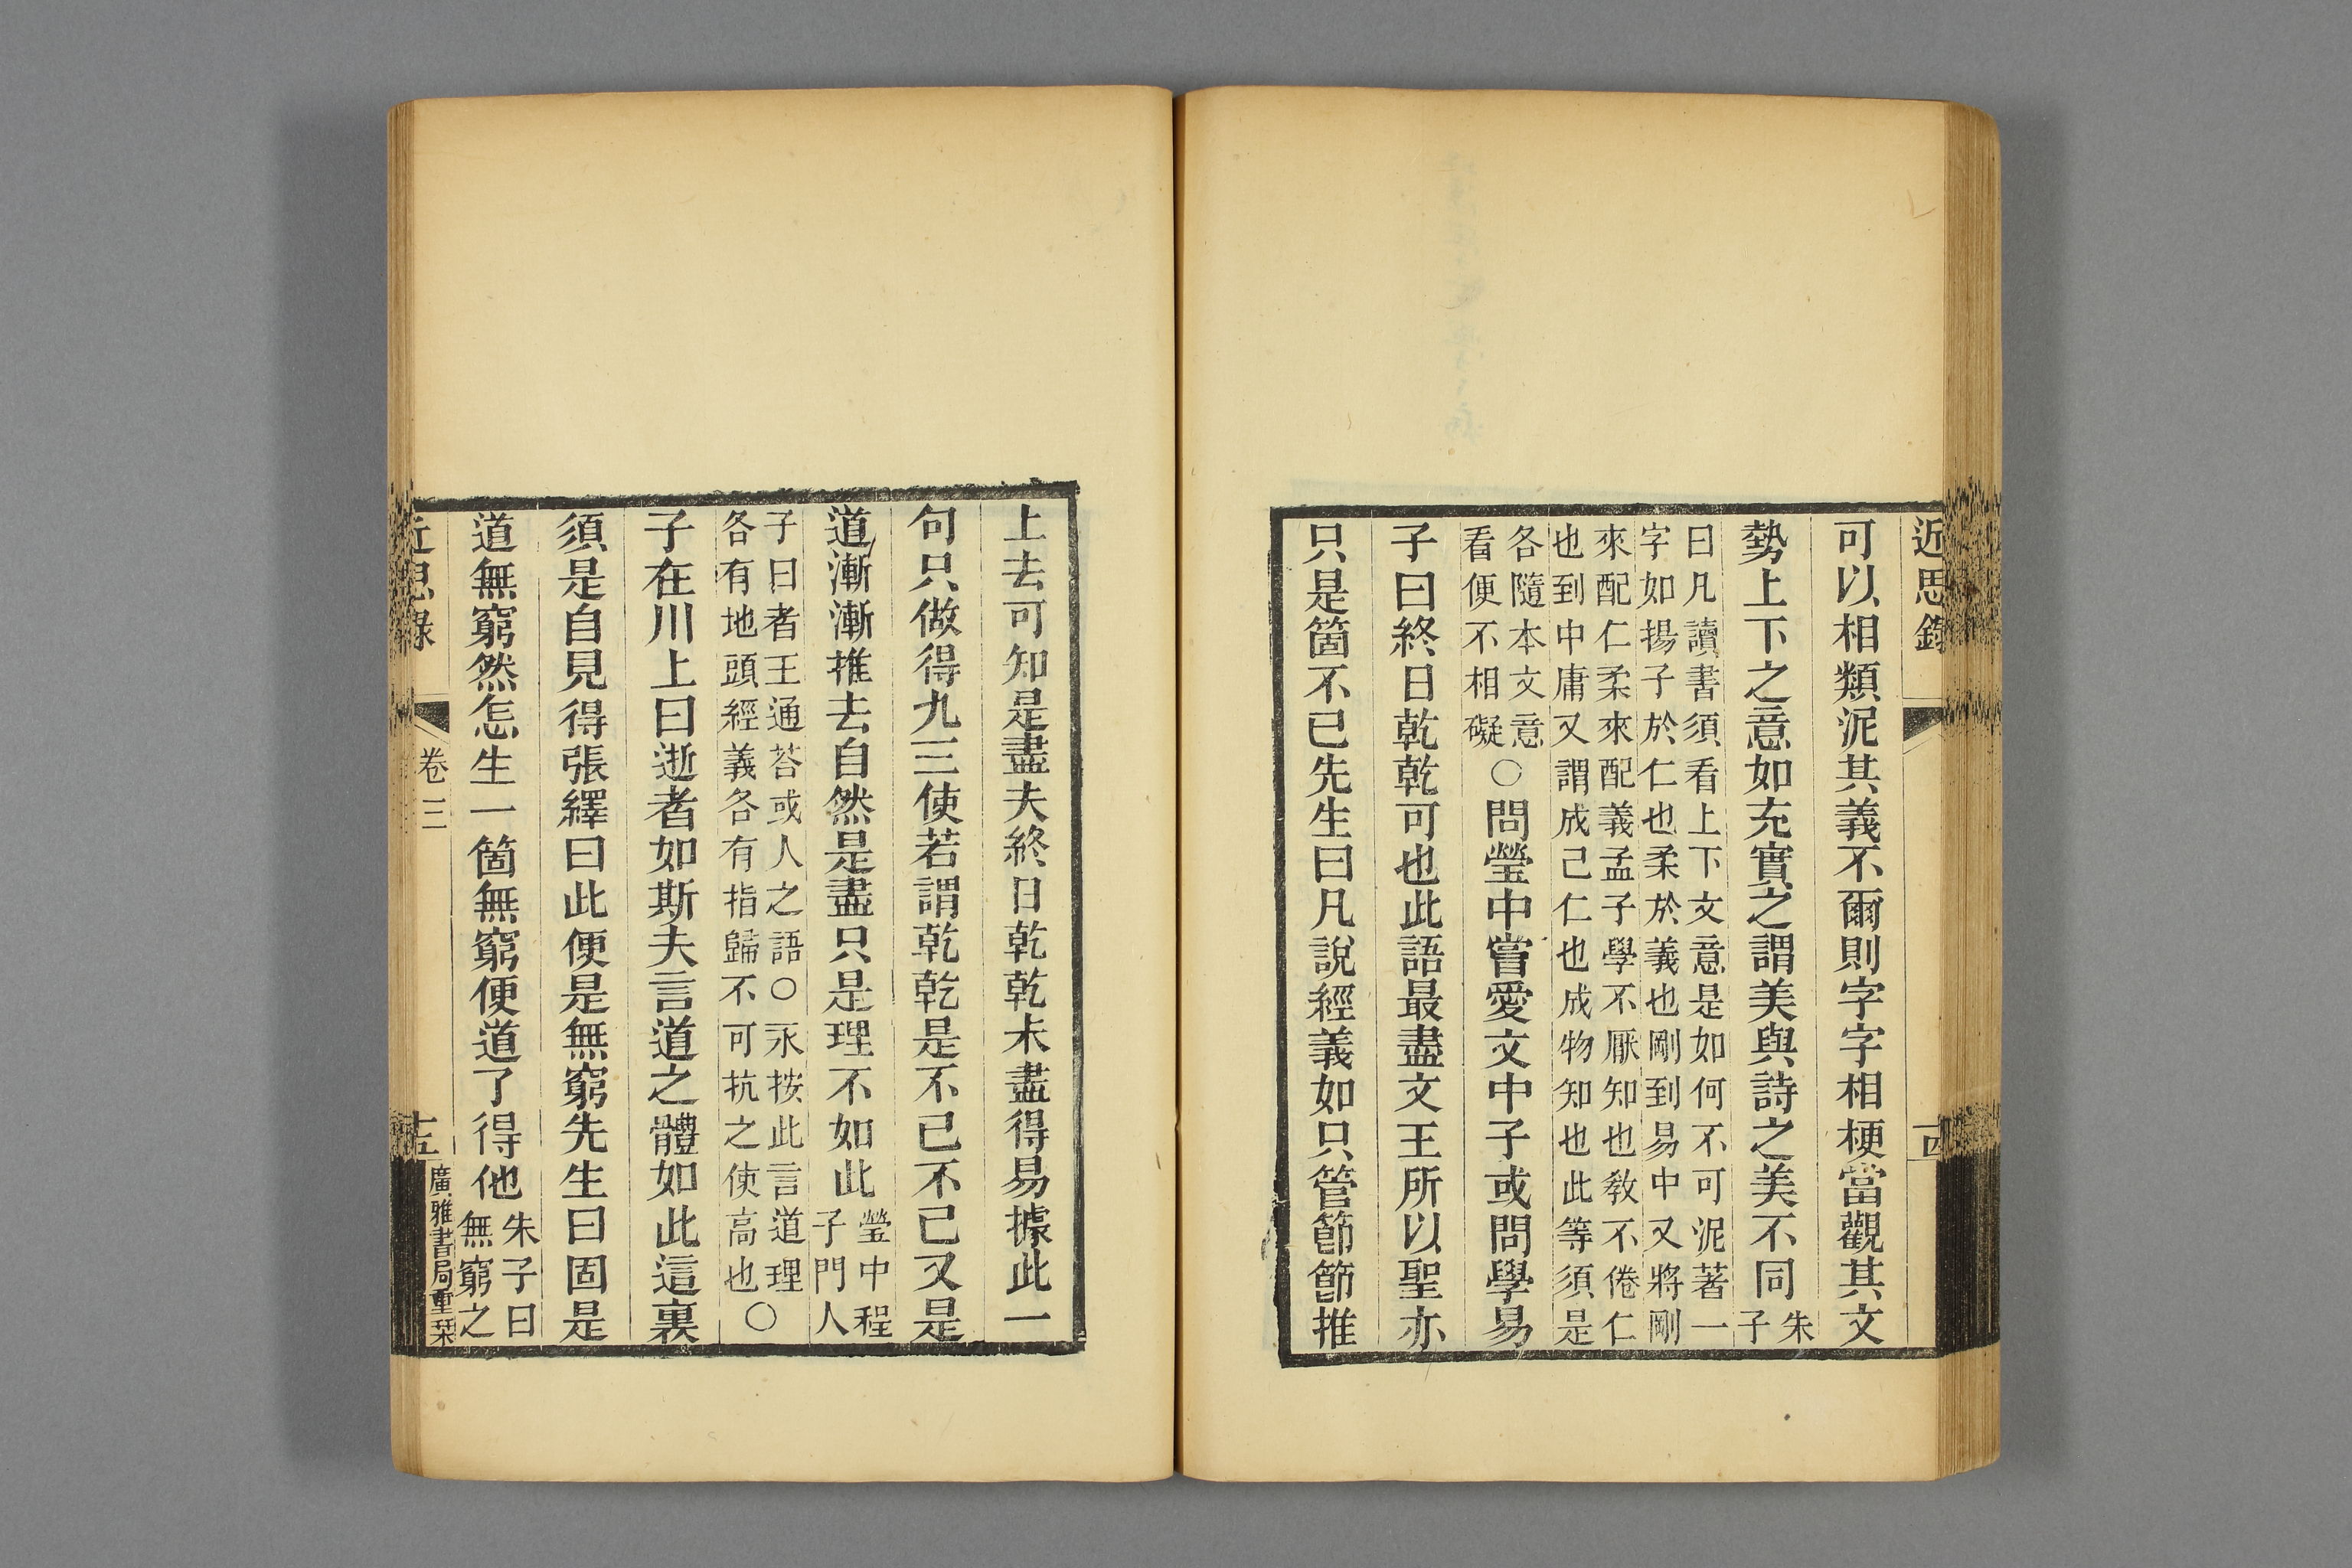 近思錄
可以相類泥其義不爾則字字相梗當觀其文
勢上下之意如充實之謂美與詩之美不同朱
子
曰凡讀書須看上下文意是如何不可泥著一
字如揚子於仁也柔於義也剛到易中又將剛
來配仁柔來配義孟子學不厭知也教不倦仁
也到中庸又謂成己仁也成物知也此等須是
各隨本文意
看便不相礙
○問瑩中嘗愛文中子或問學易
子曰終日乾乾可也此語最盡文王所以聖亦
只是箇不已先生曰凡說經義如只管節節推
上去可知是盡夫終日乾乾未盡得易據此一
句只做得九三使若謂乾乾是不已不已又是
道漸漸推去自然是盡只是理不如此
瑩中程
子門人
子曰者王通荅或人之語○永按此言道理
各有地頭經義各有指歸不可抗之使高也
○
子在川上曰逝者如斯夫言道之體如此這裏
須是自見得張繹曰此便是無窮先生曰固是
道無窮然怎生一箇無窮便道了得他
朱子曰
無窮之
近思錄
卷三
十五
廣雅書局重栞